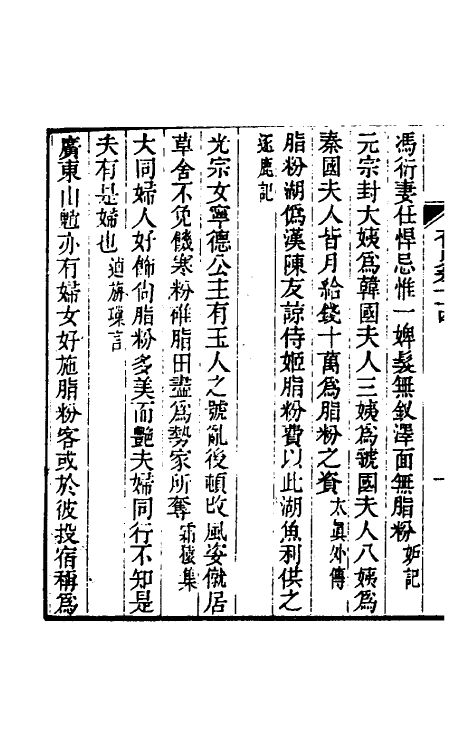 馮衍妻任悍忌惟一婢髮無釵澤面無脂粉妬記
元宗封大姨為韓國夫人三姨為虢國夫人八姨為
秦國夫人皆月給錢十萬為脂粉之資太真外傳
脂粉湖偽漢陳友諒侍姬脂粉費以此湖魚利供之
逐鹿記
光宗女寧德公主有玉人之號亂後頓改風姿僦居
草舍不免饑寒粉碓脂田盡為勢家所奪霜猿集
大同婦人好飾尚脂粉多美而艷夫婦同行不知是
夫有是婦也逌旃璅言
廣東山魈亦有婦女好施脂粉客或於彼投宿稱為